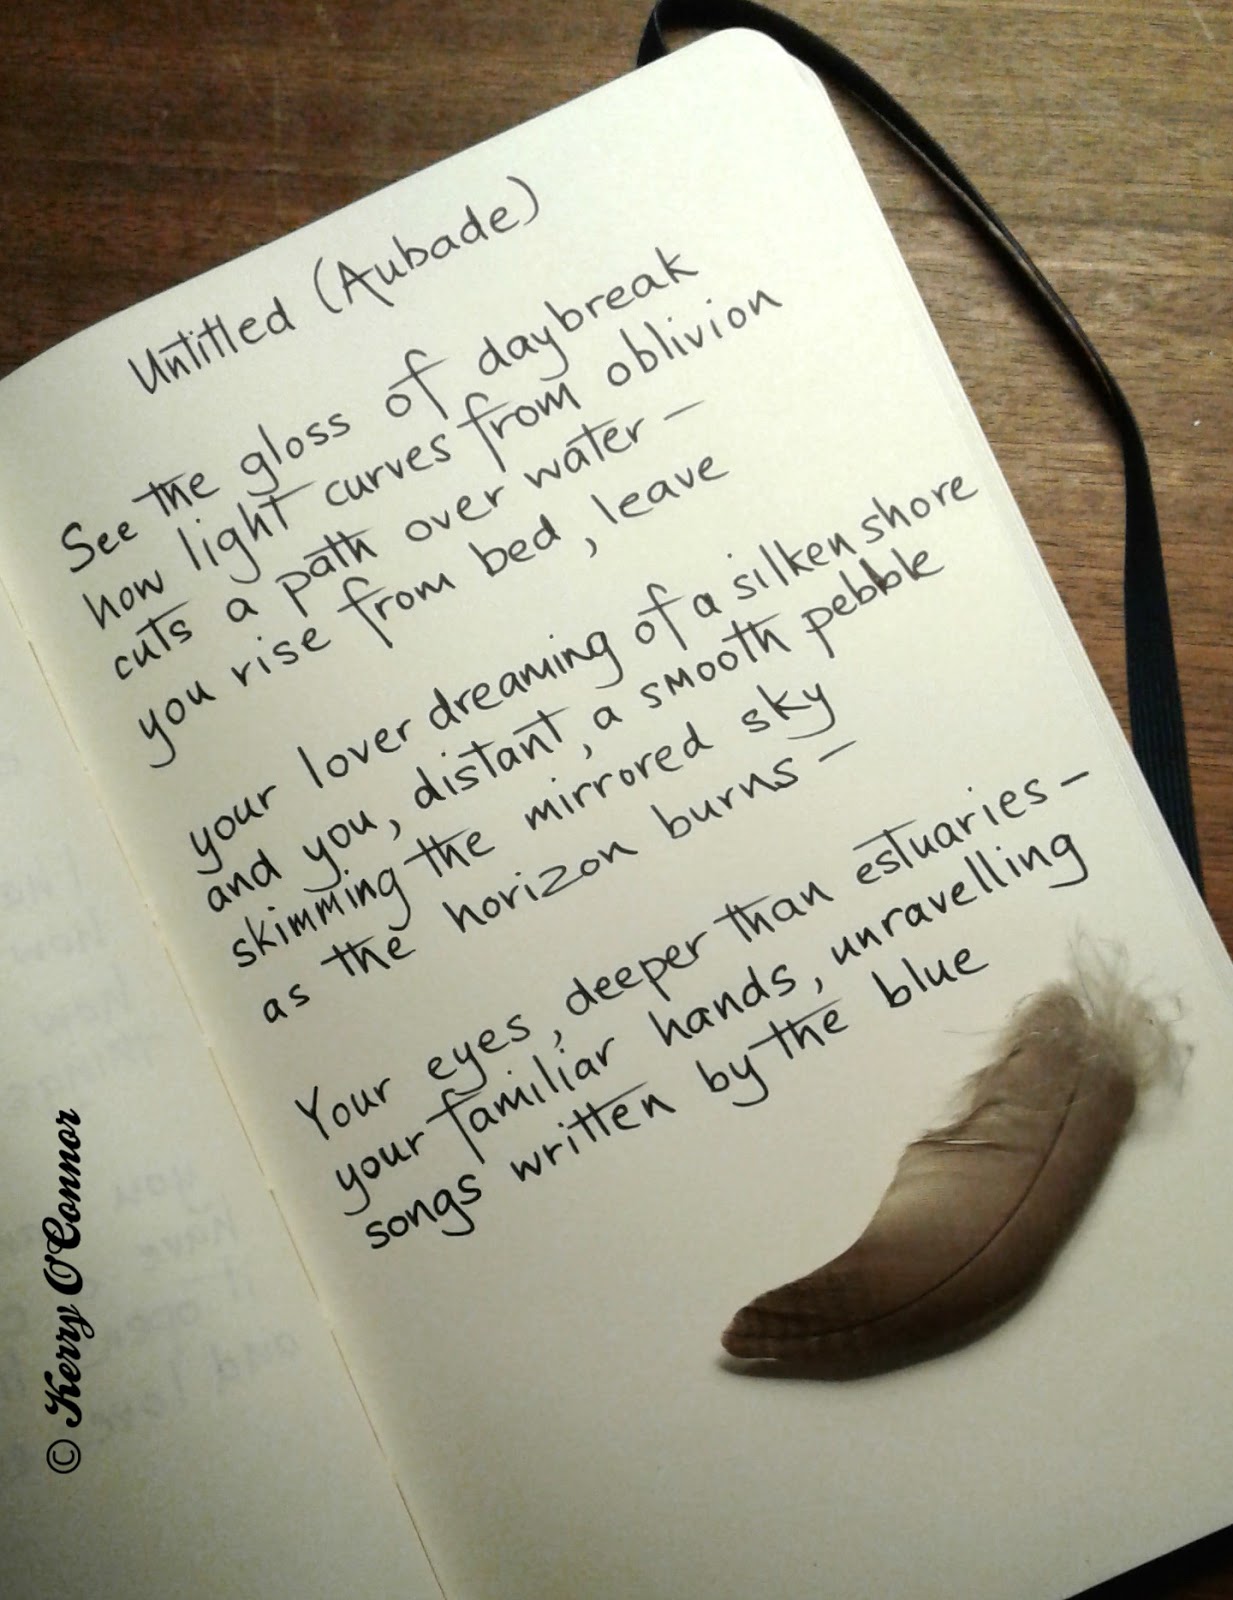 Untitled (Aubade)
See the gloss of daybreak
how light curves from oblivion
cuts a path over water –
you rise from bed, leave
your lover dreaming of a silken shore
and you, distant, a smooth pebble
skimming the mirrored sky
as the horizon burns –
Your eyes, deeper than estuaries –
your familiar hands, unravelling
songs written by the blue
© Kerry O'Connor